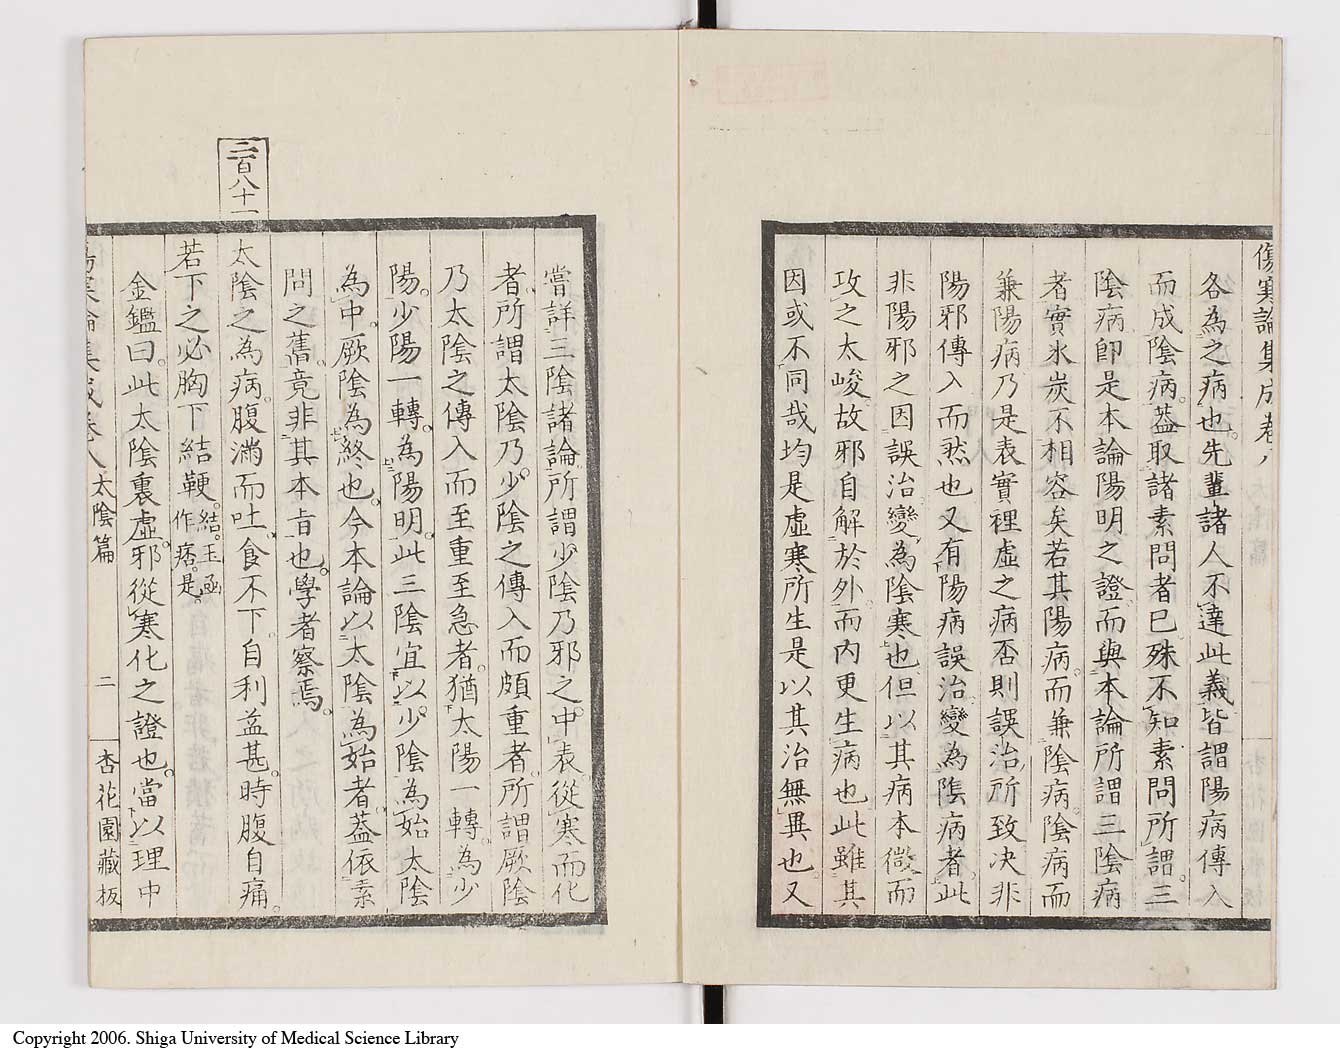 傷寒論集成卷八
各為之病也先輩諸人不達此義皆謂陽病傳入
而成陰病蓋取諸素問者已殊不知素問所謂三
陰病卽是本論陽明之證而與本論所謂三陰病
者實氷炭不相容矣若其陽病而兼陰病陰病而
兼陽病乃是表實裡虛之病否則誤治所致决非
陽邪傳入而然也又有陽病誤治變為陰病者此
非陽邪之因誤治變為陰寒也但以其病本微而
攻之太峻故邪自解於外而內更生病也此雖其
因或不同哉均是虛寒所生是以其治無異也又
嘗詳三陰諸論所謂少陰乃邪之中表從寒而化
者所謂太陰乃少陰之傳入而頗重者所謂厥陰
乃太陰之傳入而至重至急者猶太陽一轉為少
陽少陽一轉為陽明此三陰宜以少陰為始太陰
為中厥陰為終也今本論以太陰為始者蓋依素
問之舊竟非其本旨也學者察焉
二百八十一
太陰之為病腹滿而吐食不下自利益甚時腹自痛
若下之必胸下結鞕結玉函作痞是
金鑑曰此太陰裏虛邪從寒化之證也當以理中
傷寒論集成卷八 太陰篇 二 杏花園藏板
Copyright 2006. Shiga University of Medical Science Library